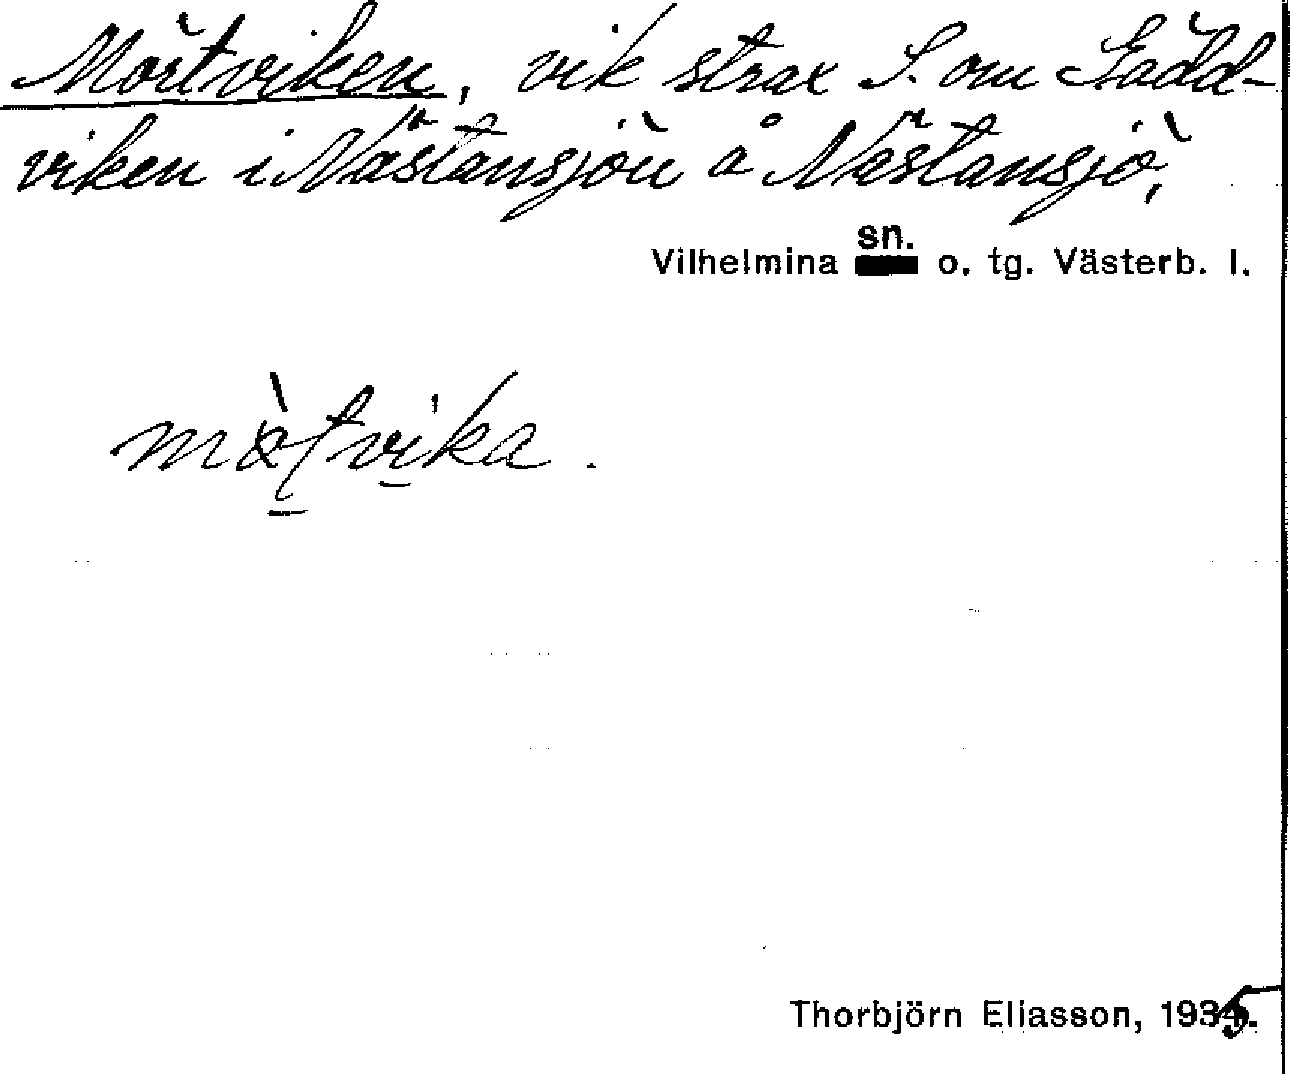 Mörtviken, vik strax S. om Gädd-
viken i Nästansjön å Nästansjö,
sn.
Vilhelmina o. tg. Västerb. l.
Thorbjörn Eliasson, 1935.